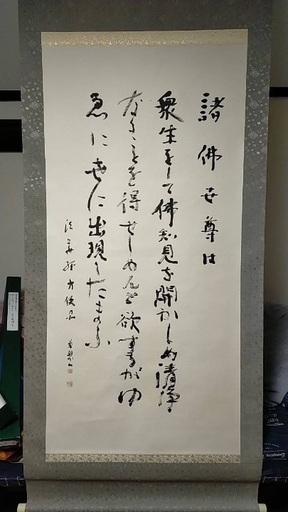 諸佛世尊は
衆生をして佛知見を開かしめ清浄
なることを得せしめんと欲するがゆ
ゑに世に出現したまふ
法華経方便品